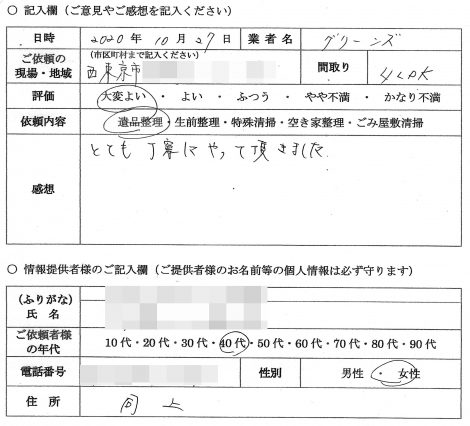 ○ 記入欄（ご意見やご感想を記入ください）
日時 2020年 10月 27日 業者名 グリーンズ
ご依頼の現場・地域 (市区町村まで記入ください) 西東京市 間取り 4LDK
評価 大変よい ・ よい ・ ふつう ・ やや不満 ・ かなり不満
依頼内容 遺品整理・生前整理・特殊清掃・空き家整理・ごみ屋敷清掃
感想 とても丁寧にやって頂きました
○ 情報提供者様のご記入欄（ご提供者様のお名前等の個人情報は必ず守ります）
(ふりがな)
氏名
ご依頼者様の年代 10代・20代・30代・40代・50代・60代・70代・80代・90代
電話番号 性別 男性 ・ 女性
住所 同上